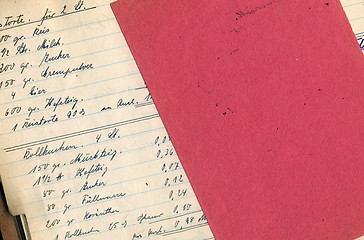 für 2 St.
00 gr. Reis
½ Ltr. Milch.
200 gr. Zucker
150 gr. Cremepulver
4 Eier
600 gr. Hefeteig.
1 Reistorte 90
Rollkuchen. 4 St.
150 gr. Mürbteig. 0,0
1½ Hefeteig 0,36
80 gr. Zucker 0,07
80 gr. Füllmasse 0,12
200 gr. Korinthen 0,24
1 Rollkuchen 25 0,10
0,98